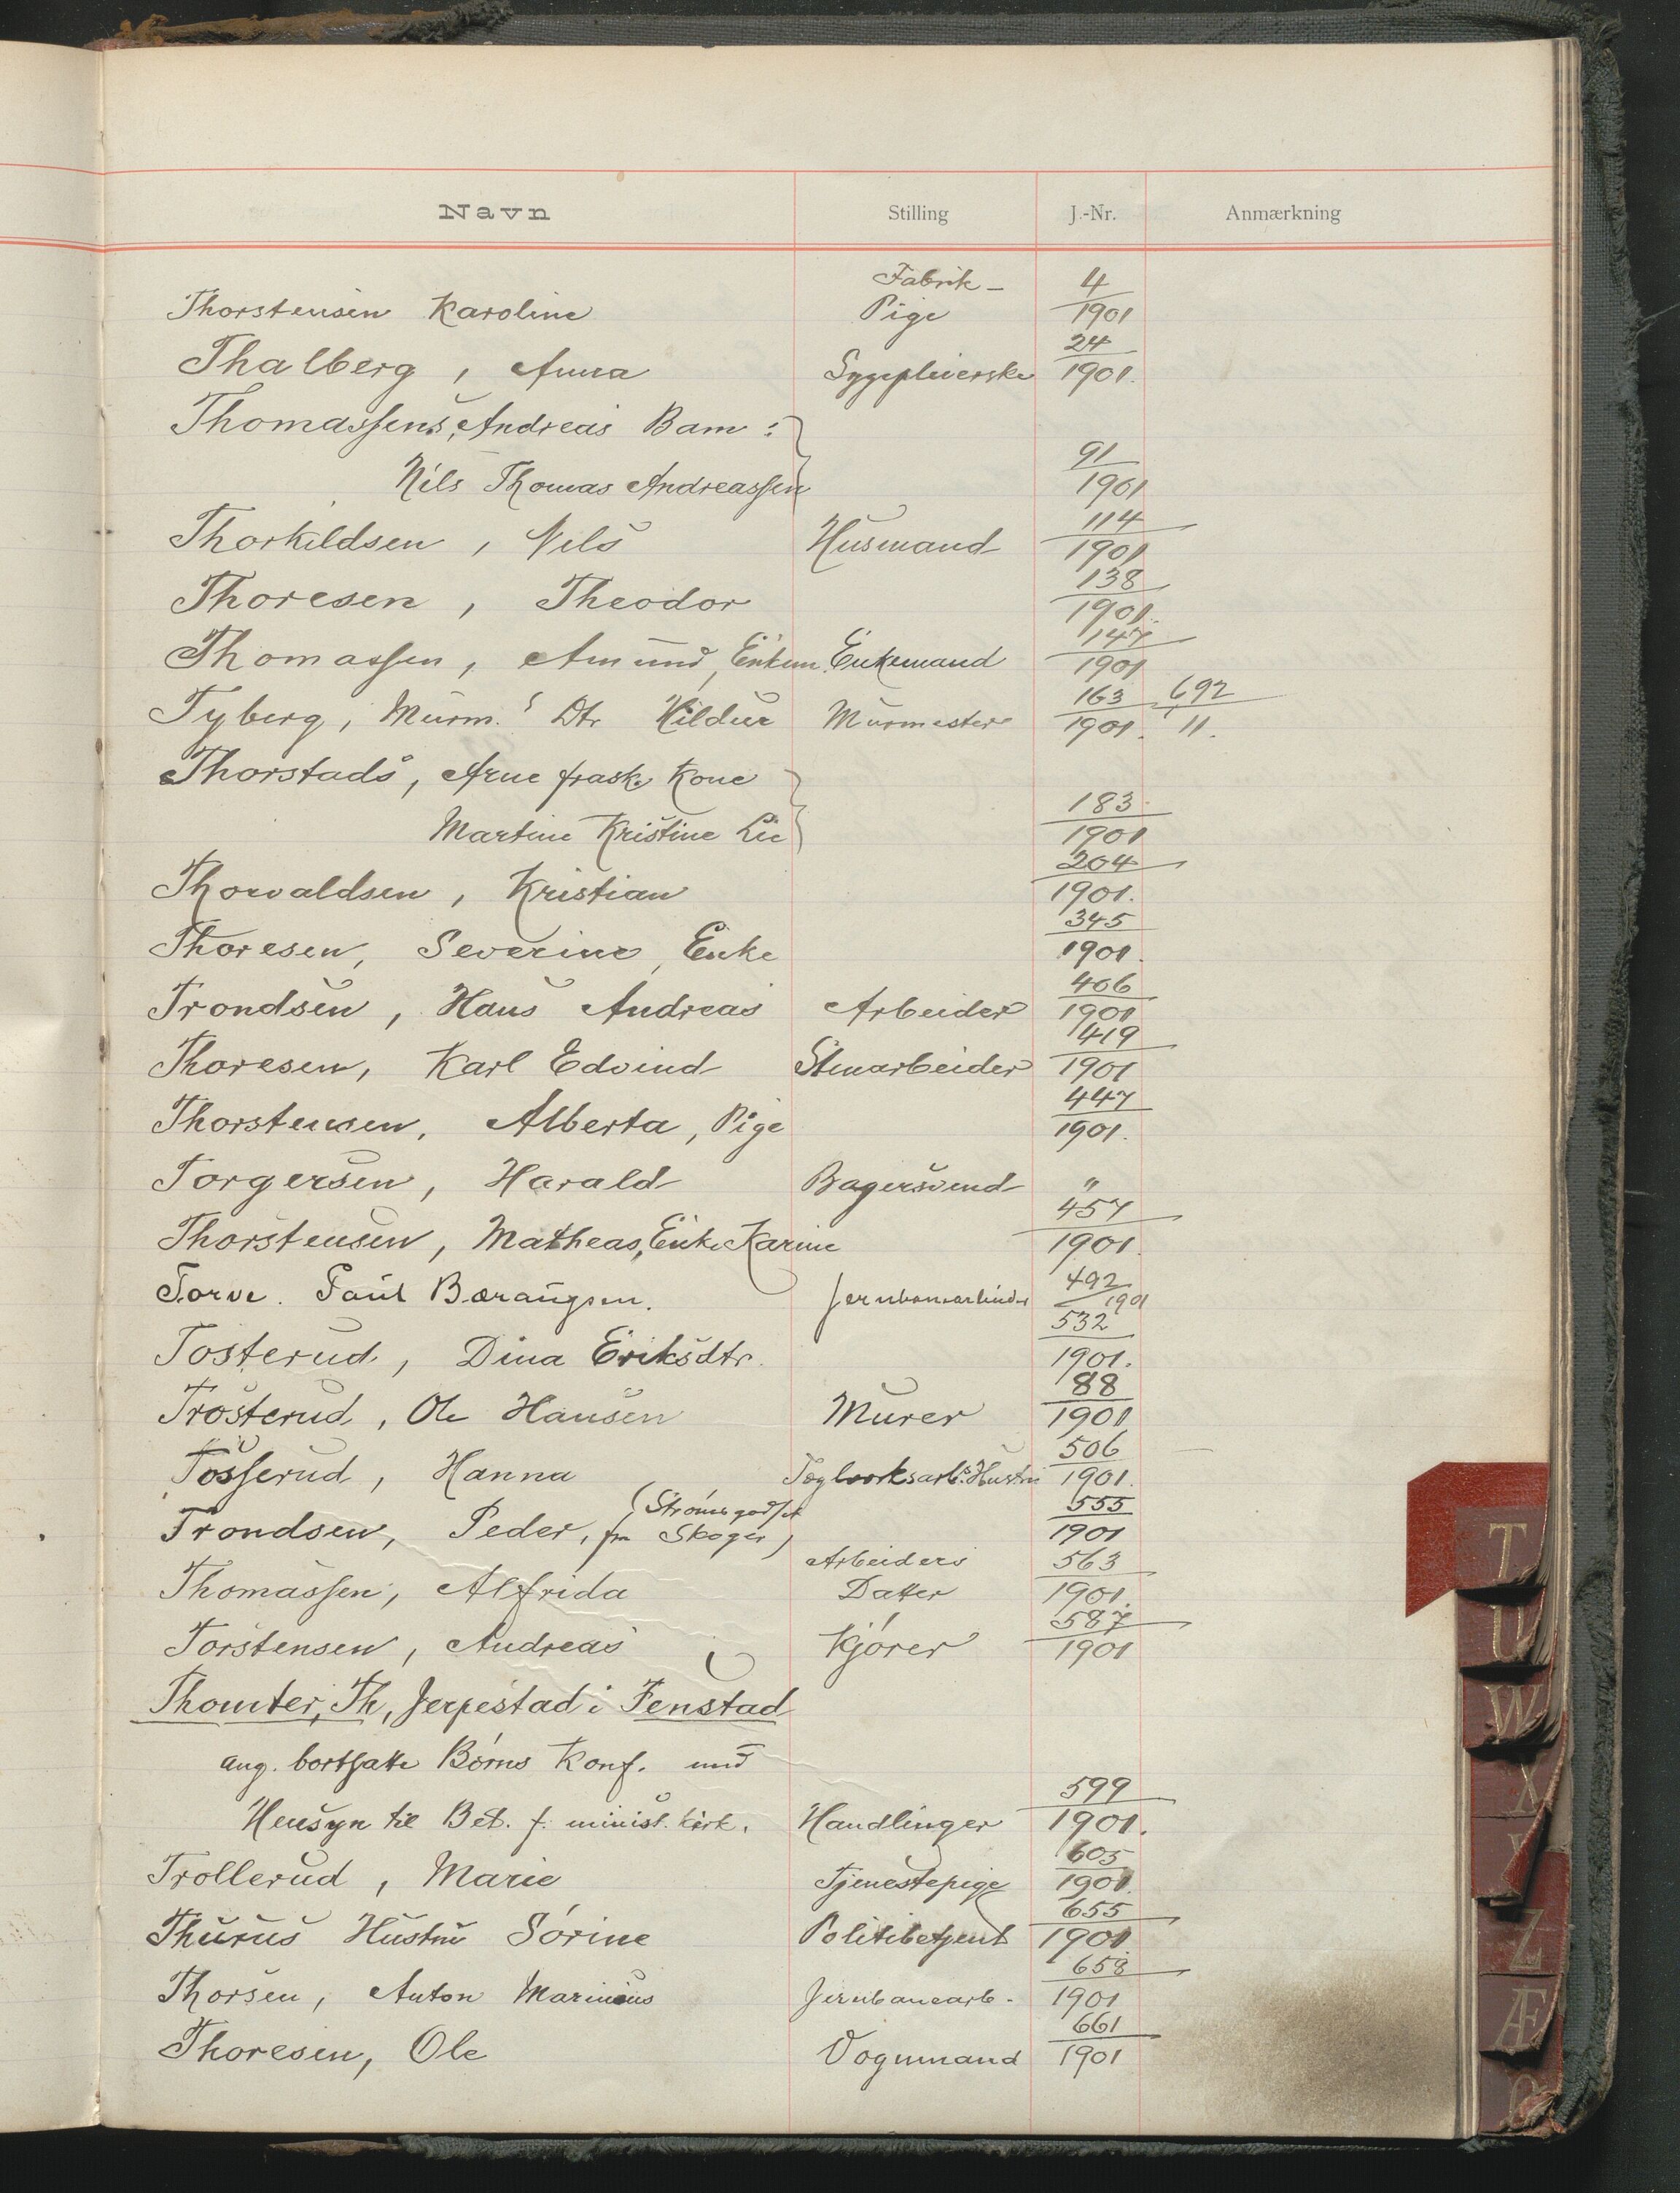 Navn Stilling J.-Nr. Anmærkning
Fabrik- 4
Thorstensen Karoline Pige 1901
24
Thalberg, Anna Sygepleierske 1901.
Thomassens, Andreas Barn:
91
Nils Thomas Andreassen 1901
114
Thorkildsen, Nils Husmand 1901
138
Thoresen, Theodor 1901.
147
Thomassen, Amund, Enkem. Enkemand 1901
163 692
Tyberg, Murm.s Dtr Hildur Murmester 1901. 11.
Thorstads, Arne frask. Kone
183
Martine Kristine Lie 1901
204
Thorvaldsen, Kristian 1901.
345
Thoresen, Severine, Enke 1901.
406
Trondsen, Hans Andreas Arbeider 1901
419
Thoresen, Karl Edvind Stenarbeider 1901
447
Thorstensen, Alberta, Pige 1901.
Torgersen, Harald Bagersvend "
457
Thorstensen, Matheas, Enke Karine 1901.
492
Torve. Paul Jernbanearbeider 1901
532
Tosterud, Dina Eriksdtr. 1901.
88
Trosterud, Ole Hansen Murer 1901
506
Tosserud, Hanna Teglverksarb.s Hustru 1901.
(Strømsgodset 555
Trondsen, Peder, fra Skoger) 1901
Arbeiders 563
Thomassen, Alfrida Datter 1901.
587
Torstensen, Andreas Kjører 1901
Thomter, Th, Jerpestad i Fenstad
ang. bortsatte Børns Konf. med
599
Hensyn til Bet. f. minist. kirk. Handlinger 1901.
605
Trollerud, Marie Tjenestepige 1901.
655
Thurus Hustru Sørine Politibetjent 1901.
658
Thorsen, Anton Marinius Jernbanearb. 1901
661
Thoresen, Ole Vognmand 1901
T
U
W
X
Y
Z
Æ